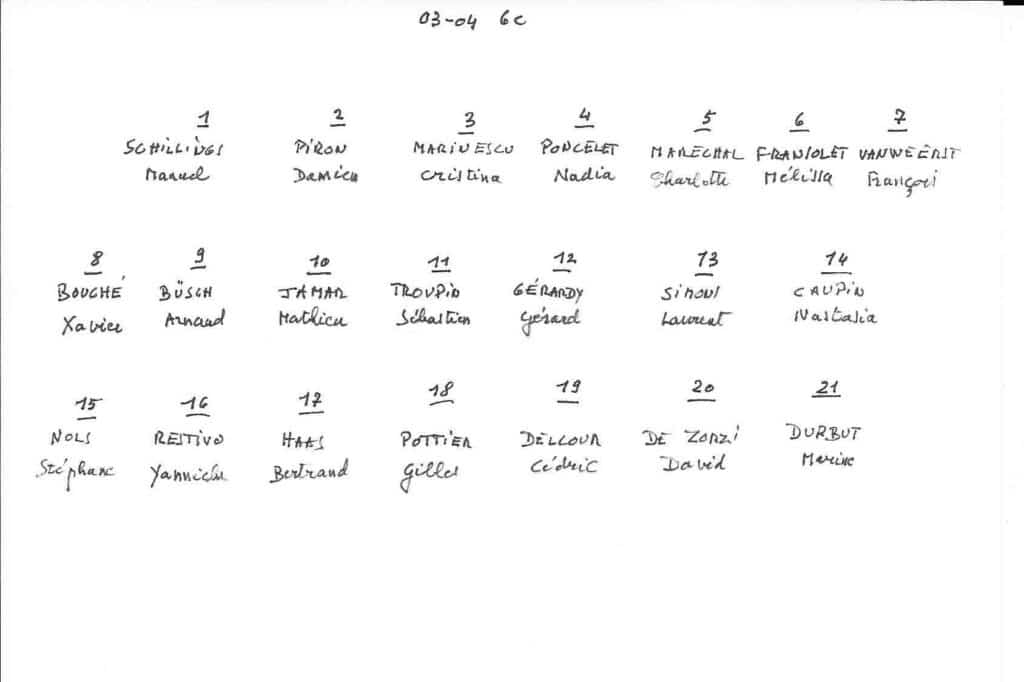 03-04 6c
1 2 3 4 5 6 7
SCHILLINGS PIRON MARINESCU PONCELET MARECHAL FRANSOLET VANWEERST
Manuel Damien Cristina Nadia Sharlotte Mélissa François
8 9 10 11 12 13 14
BOUCHÉ BÜSCH JAMAR TROUPIN GÉRARDY SIMONS CAUPIN
Xavier Arnaud Mathieu Sébastien Gérard Laurent Nastasia
15 16 17 18 19 20 21
NOLS RESTIVO HAAS POTTIER DELCOUR DE ZORZI DURBUT
Stéphane Yannick Bertrand Gilles Cédric David Marine